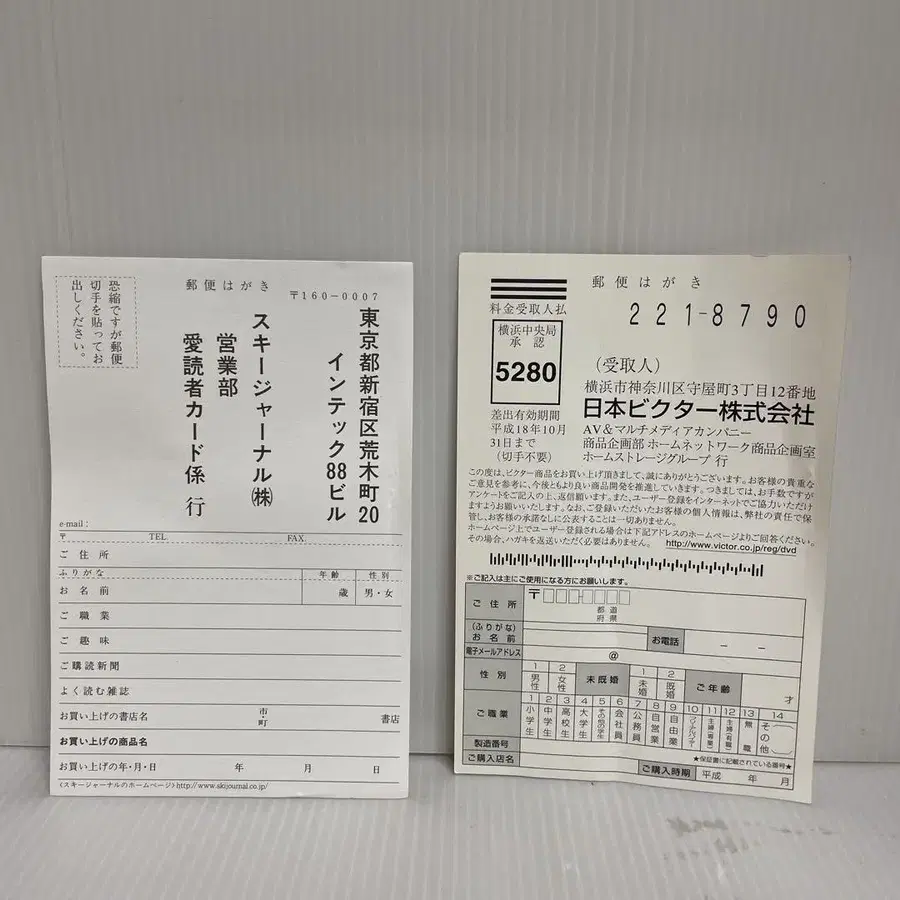 恐縮ですが郵便
切手を貼ってお
出しください。
郵便はがき
〒160-0007
東京都新宿区荒木町20
インテック88ビル
スキージャーナル㈱
営業部
愛読者カード係 行
e-mail :
〒 TEL. FAX.
ご住所
ふりがな 年齢 性別
お名前 歳 男・女
ご職業
ご趣味
ご購読新聞
よく読む雑誌
お買い上げの書店名 市・町 書店
お買い上げの商品名
お買い上げの年・月・日 年 月 日
〈スキージャーナルのホームページ〉http://www.skijournal.co.jp/
郵便はがき
料金受取人払
221-8790
横浜中央局
承認
5280
差出有効期間
平成18年10月
31日まで
(切手不要)
(受取人)
横浜市神奈川区守屋町3丁目12番地
日本ビクター株式会社
AV&マルチメディアカンパニー
商品企画部 ホームネットワーク商品企画室
ホームストレージグループ 行
この度は、ビクター商品をお買い上げ頂きまして、誠にありがとうございます。お客様の貴重な
ご意見を参考に、今後ともより良い商品開発を推進していきます。つきましては、お手数ですが
アンケートをご記入の上、返信願います。また、ユーザー登録をインターネットでご協力いただけ
ますようお願いいたします。なお、ご登録いただいたお客様の個人情報は、弊社の責任で保
管し、お客様の承諾なしに公表することは一切ありません。
ホームページ上でユーザー登録される場合は下記アドレスのホームページよりご回答ください。
その場合、ハガキを返送いただく必要はありません。 http://www.victor.co.jp/reg/dvd
※ご記入は主にご使用になる方にお願いします。
ご住所 〒 都道
府県
(ふりがな)
お名前 お電話 － －
電子メールアドレス @
性別 1 男性 2 女性 未既婚 1 未婚 2 既婚 ご年齢 才
ご職業 1 小学生 2 中学生 3 高校生 4 大学生 5 その他の学生 6 会社員 7 公務員 8 自営業 9 自由業 10 フリーアルバイター 11 主婦(専業) 12 主婦(有職) 13 無職 14 その他( )
製造番号 ★保証書に記載されている番号★
ご購入店名 ご購入時期 平成 年 月